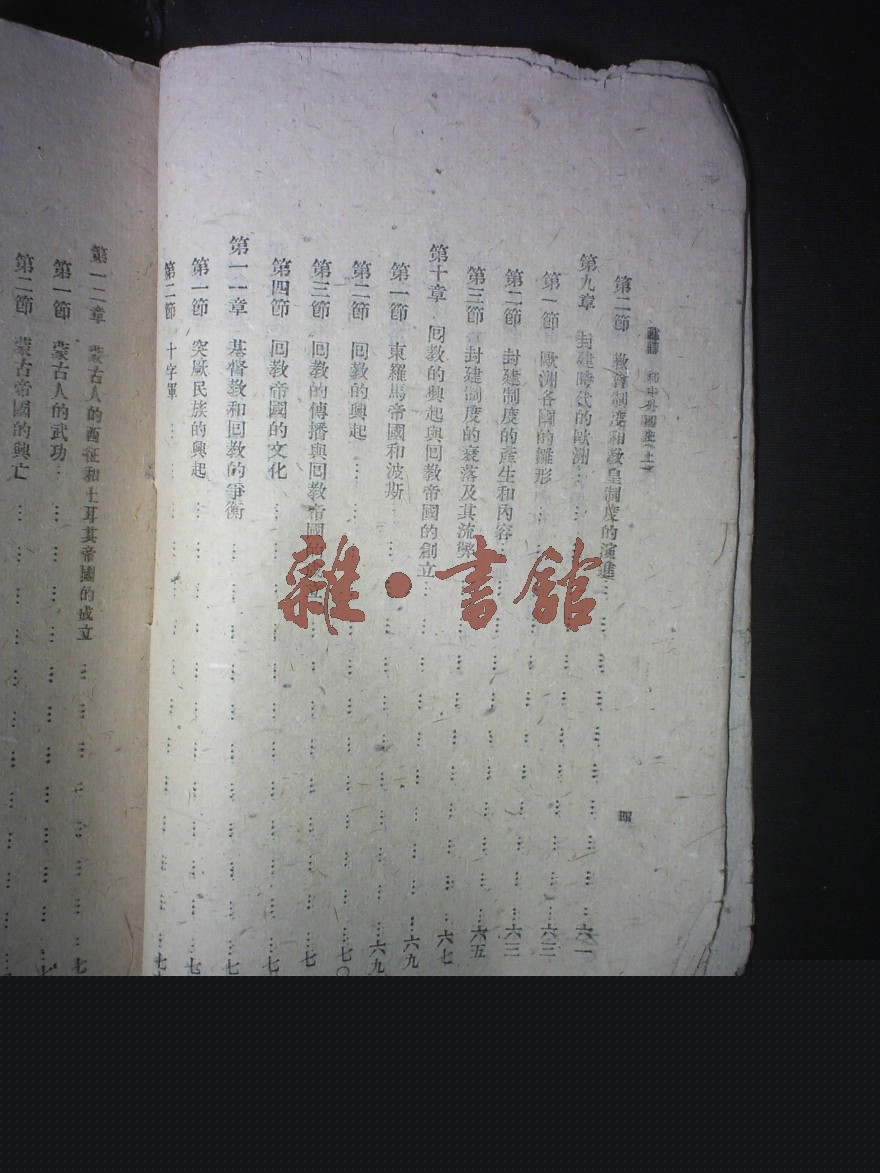 初中外國史(上)
第二節 教會制度和教皇制度的演進……六一
第九章 封建時代的歐洲……六三
第一節 歐洲各國的雛形……六三
第二節 封建制度的產生和內容……六五
第三節 封建制度的衰落及其流弊……六七
第十章 回教的興起與回教帝國的創立……六九
第一節 東羅馬帝國和波斯……六九
第二節 回教的興起……七〇
第三節 回教的傳播與回教帝國的成立……七
第四節 回教帝國的文化……七
第一一章 基督教和回教的爭衡……七
第一節 突厥民族的興起……七
第二節 十字軍……七
四
第一二章 蒙古人的西征和土耳其帝國的成立……七
第一節 蒙古人的武功……
第二節 蒙古帝國的興亡……
雜·書館